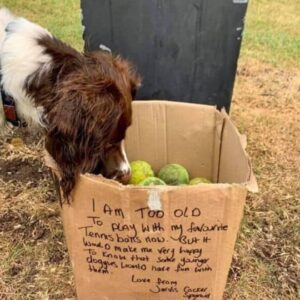 I AM TOO OLD
To PLAY with my favourite
Tennis balls now. But it
would make me very happy
to know that some younger
doggies would have fun with
them.
Love from
Jarvis Cocker
Spaniel